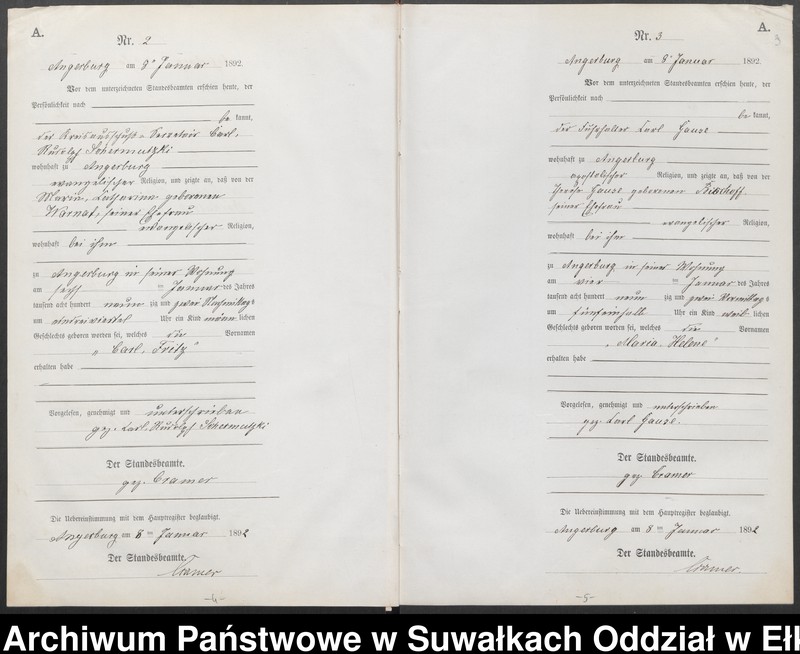 A.
Nr. 2
Angerburg am 8ten Januar 1892.
Vor dem unterzeichneten Standesbeamten erschien heute, der
Persönlichkeit nach
be kannt,
der Kreisausschuß-Secretair Carl,
Rudolf Schermutzki
wohnhaft zu Angerburg
evangelischer Religion, und zeigte an, daß von der
Marie, Catharina geborenen
Warnat, seiner Ehefrau
evangelischer Religion,
wohnhaft bei ihm
zu Angerburg in seiner Wohnung
am sechs ten Januar des Jahres
tausend acht hundert neun zig und zwei Nachmittags
um Uhr ein Kind männ lichen
Geschlechts geboren worden sei, welches die Vornamen
„Carl, Fritz"
erhalten habe
Vorgelesen, genehmigt und unterschrieben
gez. Carl Rudolf Schermutzki
Der Standesbeamte.
gez. Cramer
Die Uebereinstimmung mit dem Hauptregister beglaubigt.
Angerburg am 8 ten Januar 1892
Der Standesbeamte.
Cramer
-4-
A.
3
Nr. 3
Angerburg am 8ten Januar 1892.
Vor dem unterzeichneten Standesbeamten erschien heute, der
Persönlichkeit nach
be kannt,
der Fuhrhalter Carl Gause
wohnhaft zu Angerburg
apostolischer Religion, und zeigte an, daß von der
Gause geborenen
seiner Ehefrau
evangelischer Religion,
wohnhaft bei ihm
zu Angerburg in seiner Wohnung
am vier ten Januar des Jahres
tausend acht hundert neun zig und zwei Vormittags
um fünfeinhalb Uhr ein Kind weib lichen
Geschlechts geboren worden sei, welches die Vornamen
„Maria, Helene"
erhalten habe
Vorgelesen, genehmigt und unterschrieben
gez. Carl Gause.
Der Standesbeamte.
gez Cramer
Die Uebereinstimmung mit dem Hauptregister beglaubigt.
Angerburg am 8 ten Januar 1892
Der Standesbeamte.
Cramer.
-5-
Archiwum Państwowe w Suwałkach Oddział w Ełk